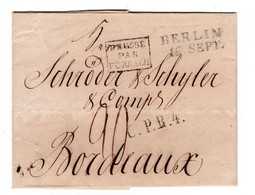 PRUSSE
PAR
FORBACH
BERLIN
16 SEPT.
Schröder & Schyler
& Comp.
C.P.R.4.
Bordeaux